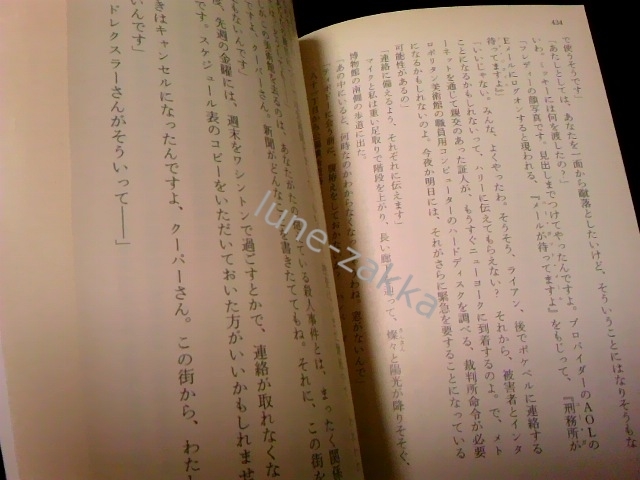 434
で使うそうです」
「あたしとしては、あなたを一面から蹴落としたいけど、そういうことにはなりそうもな
いわ。ミッキーには何を渡したの？」
「フレディーの顔写真です。見出しまでつけてやったんですよ。プロバイダーのAOLの
Eメールにログオンすると現われる、『メールが待ってますよ』をもじって、『刑務所が
待ってますよ』」
「いいじゃない。みんな、よくやったわ。そうそう、ライアン、後でポケベルに連絡する
ことになるかもしれないって、ハリーに伝えてもらえない？ それから、被害者とインタ
ーネットを通じて親交のあった証人が、もうすぐニューヨークに到着するのよ。で、メト
ロポリタン美術館の職員用コンピューターのハードディスクを調べる、裁判所命令が必要
になるかもしれないのよ。今夜か明日には、それがさらに緊急を要することになっている
可能性があるの」
「連絡に備えるよう、それぞれに伝えます」
マイクと私は重い足取りで階段を上がり、長い廊
通って、燦々と陽光が降りそそぐ、
博物館の南側の歩道に出た。
「あの中にいると、何時なのかわからなくな
わね。窓がないんで」
ている殺人事件とは、まったく関係
クーパーさん。新聞がどんな
を書きたててもね。それに、この街を
後、先週の金曜には、週末をワシントンで過ごすとかで、連絡が取れなくな
です。スケジュール表のコピーをいただいておいた方がいいかもしれませ
ないんです」
きはキャンセルになったんですよ、クーパーさん。この街から、わたし
ドレクスラーさんがそういって――」
lune-zakka